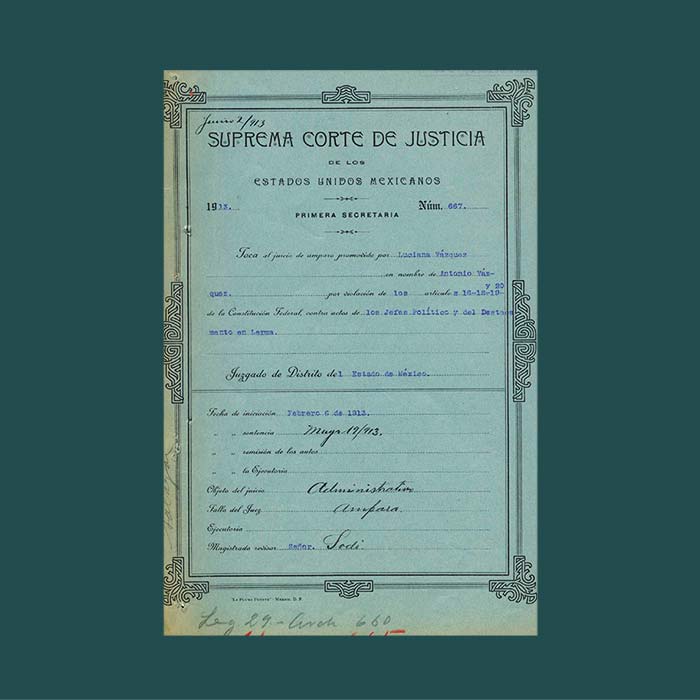 Junio 2/913
SUPREMA CORTE DE JUSTICIA
DE LOS
ESTADOS UNIDOS MEXICANOS
1913. Núm. 667.
PRIMERA SECRETARIA
Toca al juicio de amparo promovido por Luciana Vázquez
en nombre de Antonio Váz-
y 20
quez. por violación de los artículos 16-18-19-
de la Constitución Federal, contra actos de los Jefes Político y del Destaca
mento en Lerma.
Juzgado de Distrito del Estado de México.
Fecha de iniciación Febrero 6 de 1913.
" " sentencia Mayo 12/913.
" " remisión de los autos
" " la Ejecutoria
Objeto del juicio Administrativo
Falla del Juez Ampara.
Ejecutoria
Magistrado revisor Señor. Sodi.
"LA PLUMA FUENTE"-MEXICO, D. F.
Leg 29-Arch 660